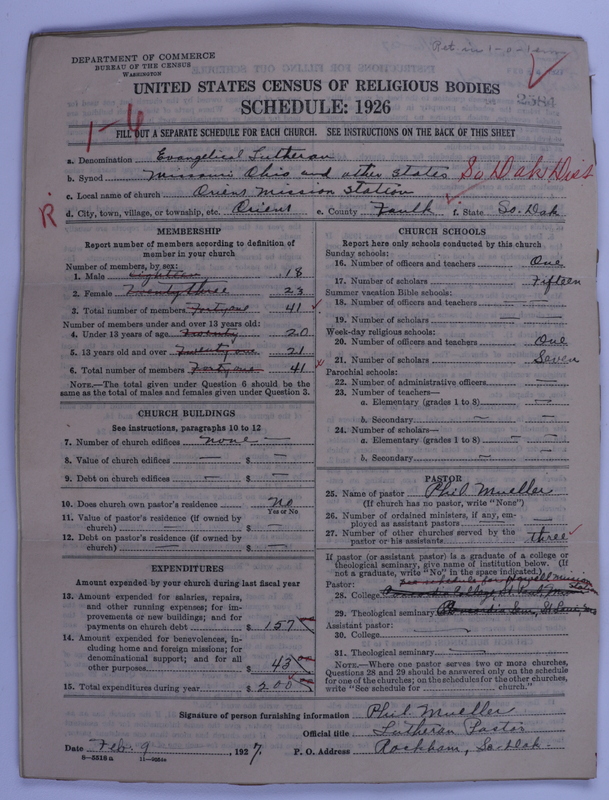 Ret
DEPARTMENT OF COMMERCE
BUREAU OF THE CENSUS
WASHINGTON
UNITED STATES CENSUS OF RELIGIOUS BODIES
SCHEDULE: 1926
2384
1-6
FILL OUT A SEPARATE SCHEDULE FOR EACH CHURCH. SEE INSTRUCTIONS ON THE BACK OF THIS SHEET
a. Denomination Evangelical Lutheran
b. Synod Missouri Ohio and other States So Dak Dist
c. Local name of church Orient Mission Station
R
d. City, town, village, or township, etc. Orient e. County Faulk f. State So. Dak
MEMBERSHIP
Report number of members according to definition of
member in your church
Number of members, by sex:
1. Male eighteen 18
2. Female Twenty three 23
3. Total number of members Forty one 41
Number of members under and over 13 years old:
4. Under 13 years of age Twenty 20
5. 13 years old and over Twenty one 21
6. Total number of members Forty one 41
NOTE.—The total given under Question 6 should be the
same as the total of males and females given under Question 3.
CHURCH BUILDINGS
See instructions, paragraphs 10 to 12
7. Number of church edifices none —
8. Value of church edifices — $ —
9. Debt on church edifices — $ —
10. Does church own pastor's residence No
Yes or No
11. Value of pastor's residence (if owned by
church) $
12. Debt on pastor's residence (if owned by
church) — $ —
EXPENDITURES
Amount expended by your church during last fiscal year
13. Amount expended for salaries, repairs,
and other running expenses; for im-
provements or new buildings; and for
payments on church debt $ 157
14. Amount expended for benevolences, in-
cluding home and foreign missions; for
denominational support; and for all
other purposes $ 43
15. Total expenditures during year $ 200
CHURCH SCHOOLS
Report here only schools conducted by this church
Sunday schools:
16. Number of officers and teachers One
17. Number of scholars Fifteen
Summer vacation Bible schools:
18. Number of officers and teachers —
19. Number of scholars — —
Week-day religious schools:
20. Number of officers and teachers One
21. Number of scholars Seven
Parochial schools:
22. Number of administrative officers —
23. Number of teachers—
a. Elementary (grades 1 to 8) — —
b. Secondary — —
24. Number of scholars—
a. Elementary (grades 1 to 8) — —
b. Secondary — —
PASTOR
25. Name of pastor Phil. Mueller
(If church has no pastor, write "None")
26. Number of ordained ministers, if any, em-
ployed as assistant pastors —
27. Number of other churches served by the
pastor or his assistants three
If pastor (or assistant pastor) is a graduate of a college or
theological seminary, give name of institution below. (If
not a graduate, write "No" in the space indicated.)
Pastor: See schedule for
28. College Concordia College, St. Paul, Minn
29. Theological seminary Concordia Sem, St Louis, Mo
Assistant pastor:
30. College —
31. Theological seminary —
NOTE.—Where one pastor serves two or more churches,
Questions 28 and 29 should be answered only on the schedule
for one of the churches; on the schedules for the other churches,
write "See schedule for ............ church."
Signature of person furnishing information Phil. Mueller
Official title Lutheran Pastor
Date Feb. 9, 1927. P. O. Address Rockham, So. Dak.
8—5518a